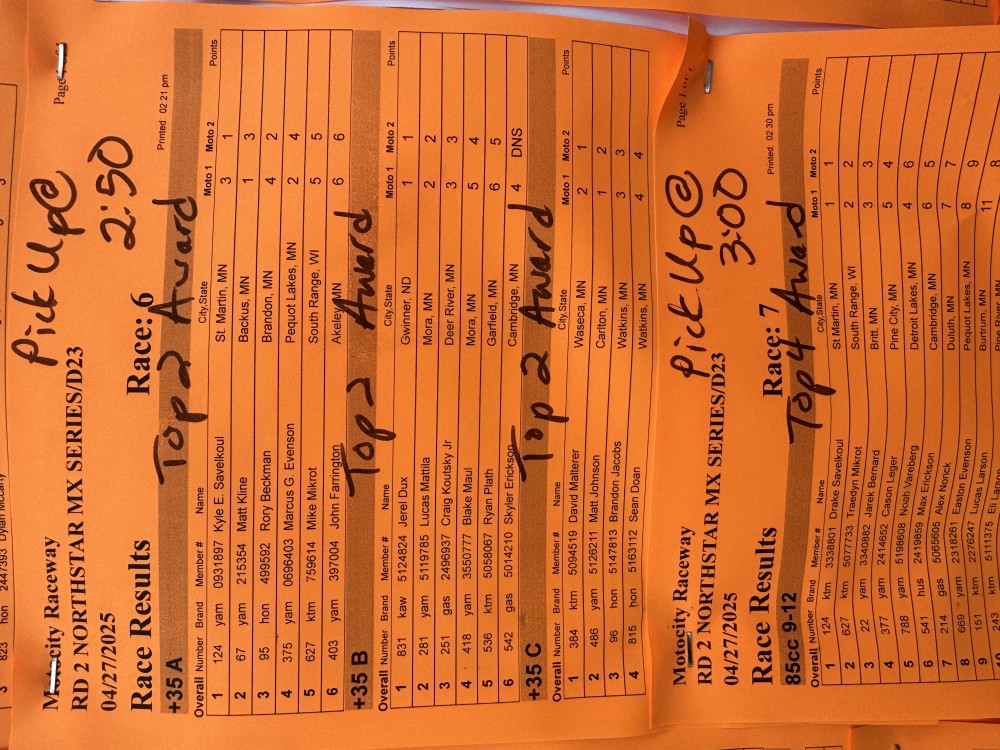 3 823 hon 2447393 Dylan McCarty
Motocity Raceway
RD 2 NORTHSTAR MX SERIES/D23
04/27/2025
Pick Up @
2:50
Page
Race Results Race: 6 Printed: 02:21 pm
+35 A Top 2 Award
Overall Number Brand Member # Name City,State Moto 1 Moto 2 Points
1 124 yam 0931897 Kyle E. Savelkoul St. Martin, MN 3 1
2 67 yam 215354 Matt Kline Backus, MN 1 3
3 95 hon 499592 Rory Beckman Brandon, MN 4 2
4 375 yam 0696403 Marcus G. Evenson Pequot Lakes, MN 2 4
5 627 ktm 759614 Mike Mikrot South Range, WI 5 5
6 403 yam 397004 John Farrington Akeley MN 6 6
+35 B Top 2 Award
Overall Number Brand Member # Name City,State Moto 1 Moto 2 Points
1 831 kaw 5124824 Jerel Dux Gwinner, ND 1 1
2 281 yam 5119785 Lucas Mattila Mora, MN 2 2
3 251 gas 2496937 Craig Koutsky Jr Deer River, MN 3 3
4 418 yam 3550777 Blake Maul Mora, MN 5 4
5 536 ktm 5058067 Ryan Plath Garfield, MN 6 5
6 542 gas 5014210 Skyler Erickson Cambridge, MN 4 DNS
+35 C Top 2 Award
Overall Number Brand Member # Name City,State Moto 1 Moto 2 Points
1 384 ktm 5094519 David Malterer Waseca, MN 2 1
2 486 yam 5126211 Matt Johnson Carlton, MN 1 2
3 96 hon 5147813 Brandon Jacobs Watkins, MN 3 3
4 815 hon 5163112 Sean Doan Watkins, MN 4 4
Motocity Raceway
RD 2 NORTHSTAR MX SERIES/D23
04/27/2025
Pick Up @
3:00
Page 1 of 1
Race Results Race: 7 Printed: 02:30 pm
85cc 9-12 Top 4 Award
Overall Number Brand Member # Name City,State Moto 1 Moto 2 Points
1 124 ktm 3338801 Drake Savelkoul St Martin, MN 1 1
2 627 ktm 5077733 Traedyn Mikrot South Range, WI 2 2
3 22 yam 3340882 Jarek Bernard Britt, MN 3 3
4 377 yam 2414652 Cason Leger Pine City, MN 5 4
5 788 yam 5198608 Noah Vareberg Detroit Lakes, MN 4 6
6 541 hus 2419859 Max Erickson Cambridge, MN 6 5
7 214 gas 5065605 Alex Norick Duluth, MN 7 7
8 669 yam 2318261 Easton Evenson Pequot Lakes, MN 8 9
9 151 ktm 2276247 Lucas Larson Burtrum, MN 11 8
243 ktm 5111375 Eli Larson